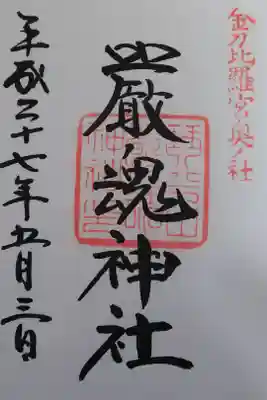 金刀比羅宮奥ノ社
嚴魂神社
平成二十七年五月三日